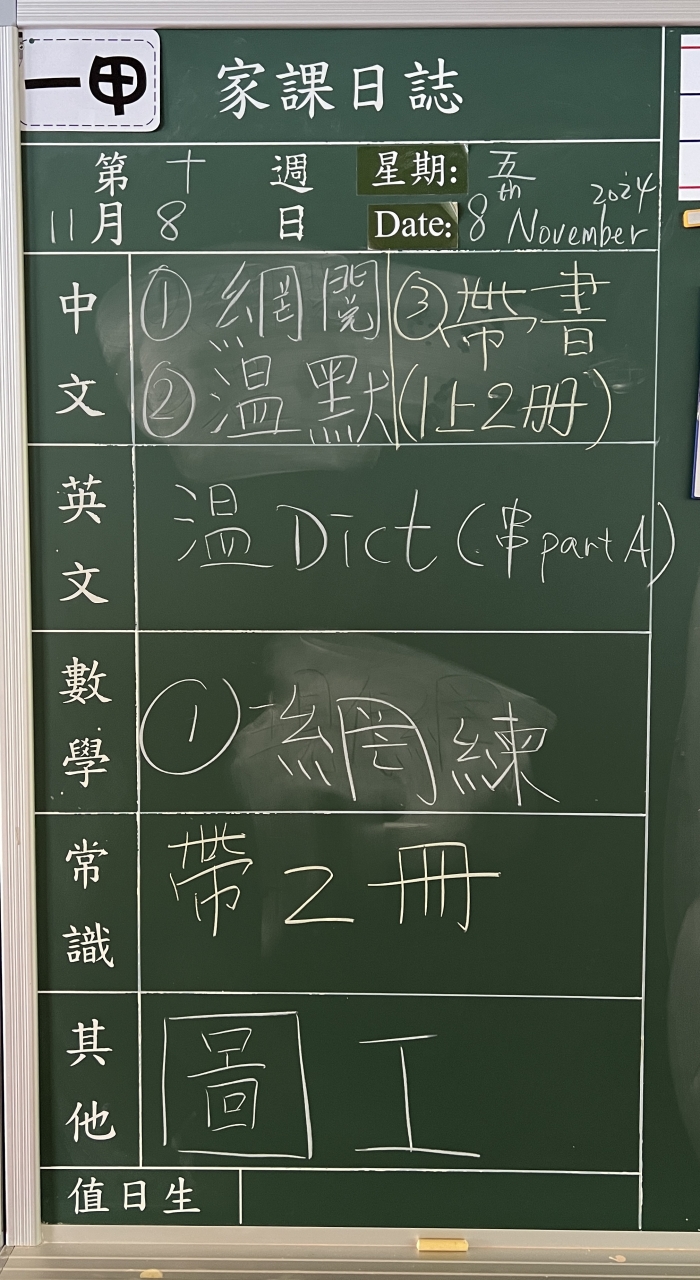 一甲
家課日誌
第 十 週 星期: 五
11月 8 日 Date: 8th November 2024
中文
① 網閱 ③帶書
② 溫默 (1上2册)
英文
溫 Dict (串 part A)
數學
① 網練
常識
帶 2 冊
其他
圖工
值日生